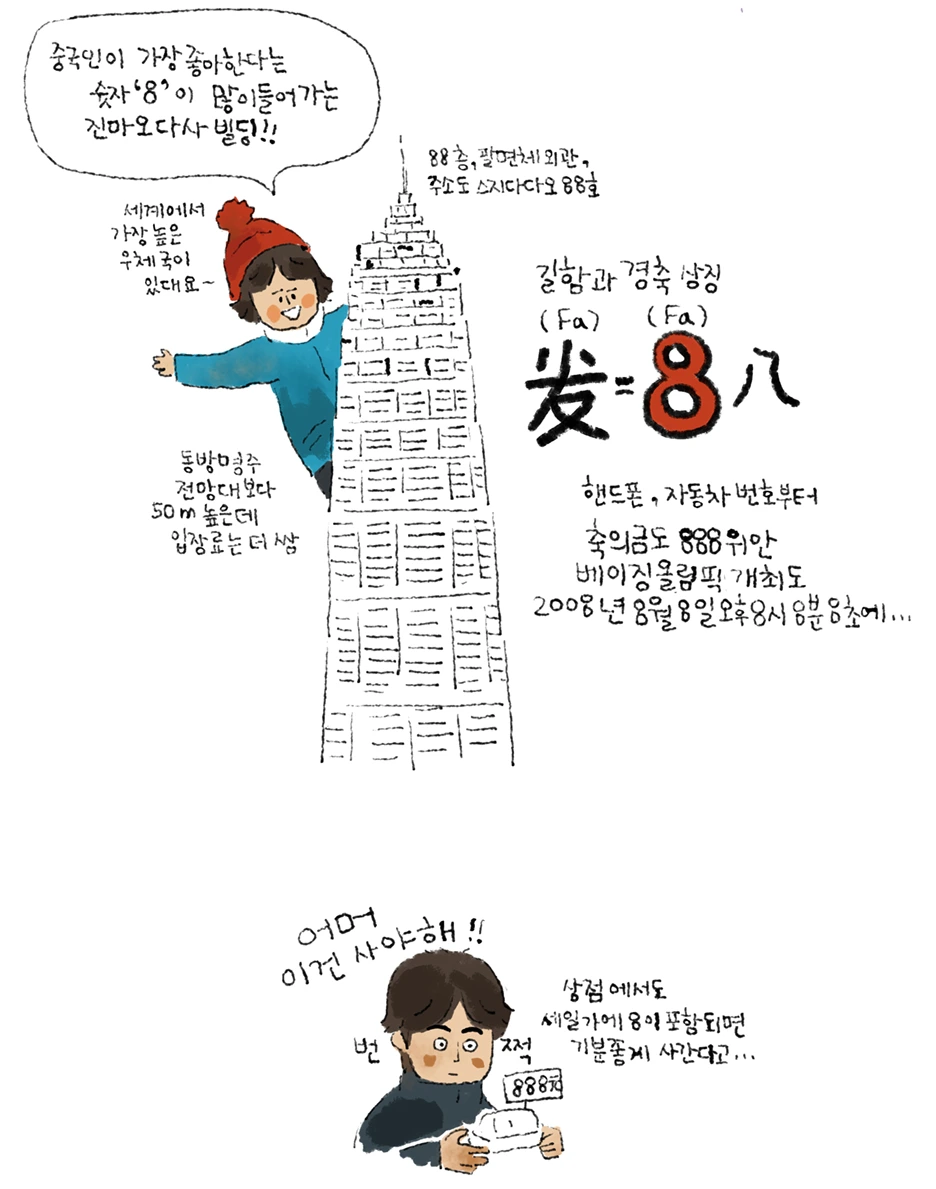 중국인이 가장 좋아한다는
숫자 '8'이 많이들어가는
진마오다사 빌딩!!
88층, 팔면체 외관,
주소도 스지다다오 88호
세계에서
가장 높은
우체국이
있대요~
길함과 경축 상징
(Fa) (Fa)
发=8 八
동방명주
전망대보다
50m 높은데
입장료는 더 쌈
핸드폰, 자동차 번호부터
축의금도 888위안
베이징올림픽 개최도
2008년 8월 8일 오후 8시 8분 8초에...
어머
이건 사야해!!
번쩍
888元
상점에서도
세일가에 8이 포함되면
기분좋게 사간다고...